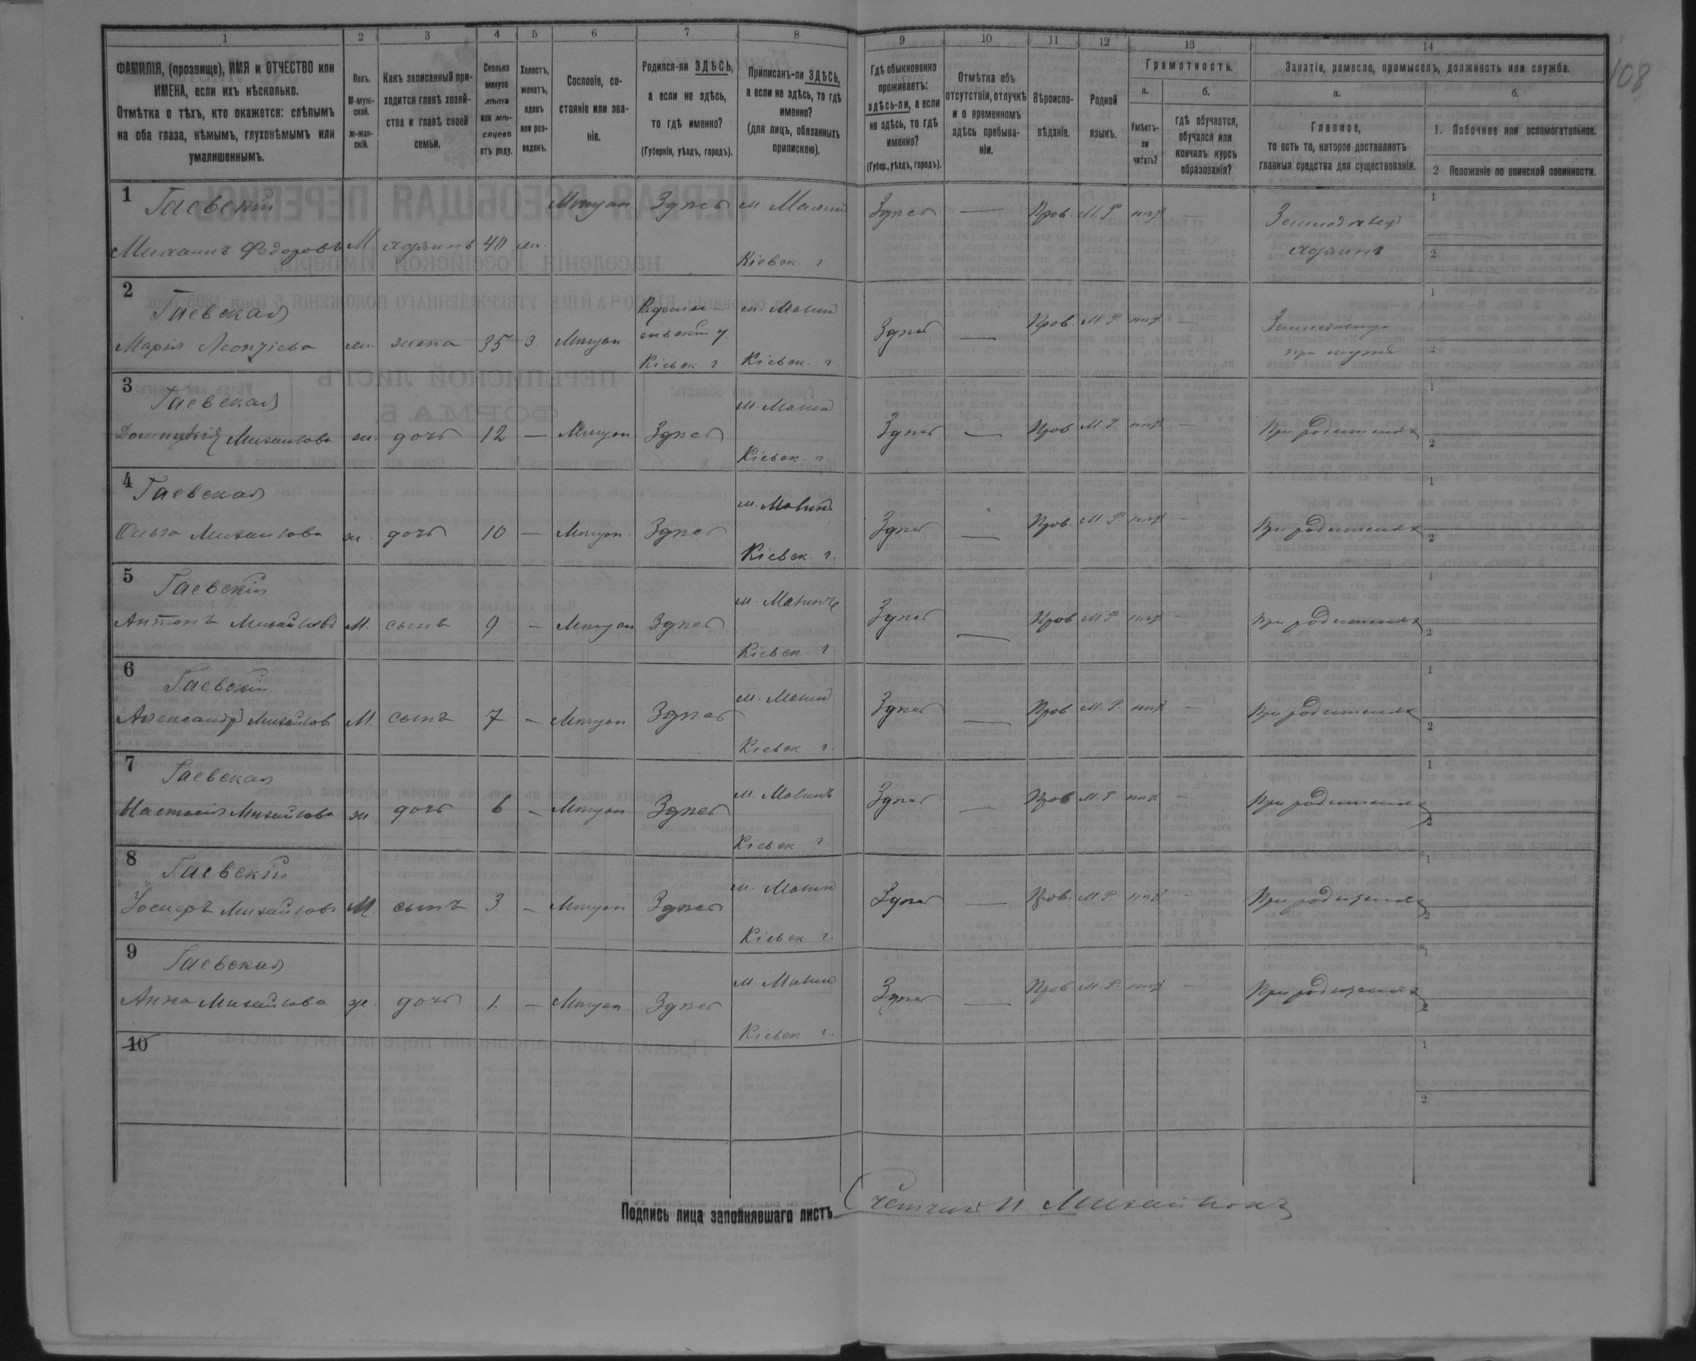 1 2 3 4 5 6 7 8 9 10 11 12 13 14
108
ФАМИЛІЯ, (прозвище), ИМЯ и ОТЧЕСТВО или
ИМЕНА, если ихъ нѣсколько.
Отмѣтка о тѣхъ, кто окажется: слѣпымъ
на оба глаза, нѣмымъ, глухонѣмымъ или
умалишеннымъ.
Полъ.
М-муж-
ской.
ж-жен-
скій.
Какъ записанный при-
ходится главѣ хозяй-
ства и главѣ своей
семьи.
Сколько
минуло
лѣтъ
или мѣ-
сяцевъ
отъ роду.
Холостъ,
женатъ,
вдовъ
или раз-
веденъ.
Сословіе, со-
стояніе или зва-
ніе.
Родился-ли ЗДѢСЬ,
а если не здѣсь,
то гдѣ именно?
(Губернія, уѣздъ, городъ).
Приписанъ-ли ЗДѢСЬ,
а если не здѣсь, то гдѣ
именно?
(для лицъ, обязанныхъ
припискою).
Гдѣ обыкновенно
проживаетъ:
здѣсь-ли, а если
не здѣсь, то гдѣ
именно?
(Губер., уѣздъ, городъ).
Отмѣтка объ
отсутствіи, отлучкѣ
и о временномъ
здѣсь пребыва-
ніи.
Вѣроиспо-
вѣданіе.
Родной
языкъ.
Грамотность.
а.
Умѣетъ-
ли
читать?
б.
гдѣ обучается,
обучался или
кончилъ курсъ
образованія?
Занятіе, ремесло, промыселъ, должность или служба.
а.
Главное,
то есть то, которое доставляетъ
главныя средства для существованія.
б.
1. Побочное или вспомогательное.
2 Положеніе по воинской повинности.
1 Гаевскій Мѣщан Здѣсь м. Малин Здѣсь — Прав. М. Р. —
Михаилъ Федоровъ М. хозяинъ 40 Кіевск. г. хозяинъ
2 Гаевская м. Малин
Марія Леонтіева жена 35 з. Мѣщан Кіевск. г. Кіевск. г. Здѣсь — Прав. М. Р. —
3 Гаевская м. Малин
Михайлова ж. дочь 12 — Мѣщан Здѣсь Кіевск. г. Здѣсь — Прав. М. Р. — При родителях
4 Гаевская м. Малин
Ольга Михайлова ж. дочь 10 — Мѣщан. Здѣсь Кіевск. г. Здѣсь — Прав. М. Р. — При родителях
5 Гаевскій м. Малинѣ
Антонъ Михайловъ М. сынъ 9 — Мѣщан Здѣсь Кіевск. г. Здѣсь — Прав. М. Р. — При родителях
6 Гаевскій м. Малин
Александръ Михайлов М. сынъ 7 — Мѣщан Здѣсь Кіевск. г. Здѣсь — Прав. М. Р. — При родителях
7 Гаевская м. Малинъ
Настасія Михайлова ж. дочь 6 — Мѣщан Здѣсь Кіевск. г. Здѣсь — Прав. М. Р. — При родителях
8 Гаевскій м. Малин
Іосифъ Михайловъ М. сынъ 3 — Мѣщан Здѣсь Кіевск. г. Здѣсь — Прав. М. Р. — При родителях
9 Гаевская м. Малин
Анна Михайлова ж. дочь 1. — Мѣщан. Здѣсь Кіевск. г. Здѣсь — Прав. М. Р. — При родителях
10
Подпись лица заполнявшаго листъ Счетчикъ И